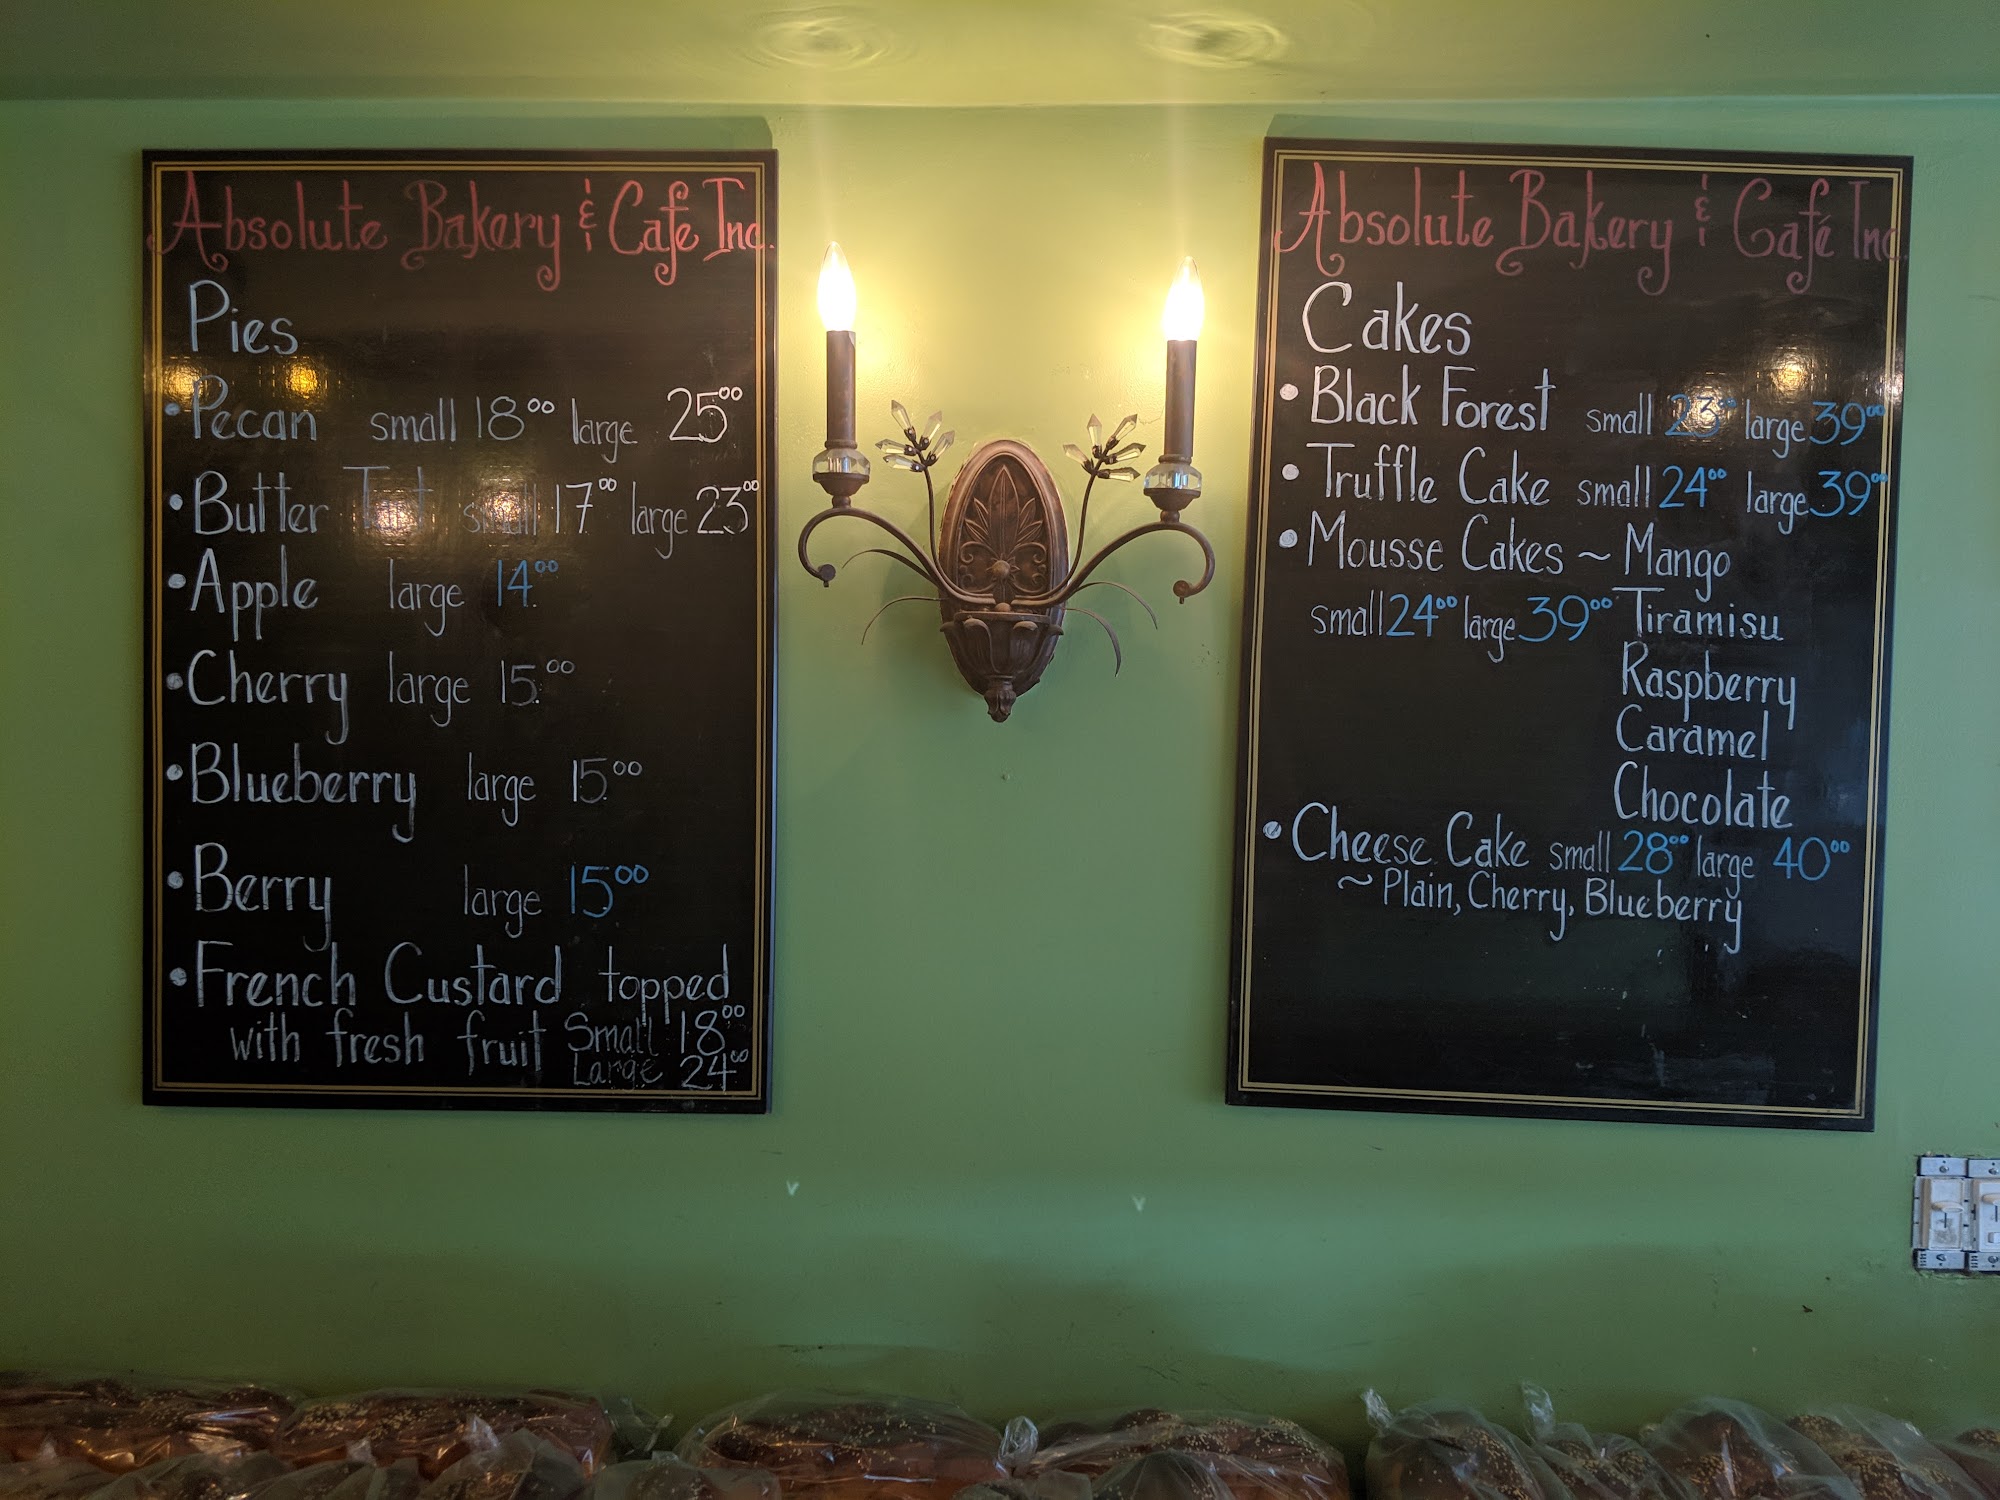 Absolute Bakery & Cafe Inc.
Pies
• Pecan small 18.00 large 25.00
• Butter Tart small 17.00 large 23.00
• Apple large 14.00
• Cherry large 15.00
• Blueberry large 15.00
• Berry large 15.00
• French Custard topped
with fresh fruit Small 18.00
Large 24.00
Absolute Bakery & Café Inc.
Cakes
• Black Forest small 23.00 large 39.00
• Truffle Cake small 24.00 large 39.00
• Mousse Cakes ~ Mango
small 24.00 large 39.00 Tiramisu
Raspberry
Caramel
Chocolate
• Cheese Cake small 28.00 large 40.00
~ Plain, Cherry, Blueberry